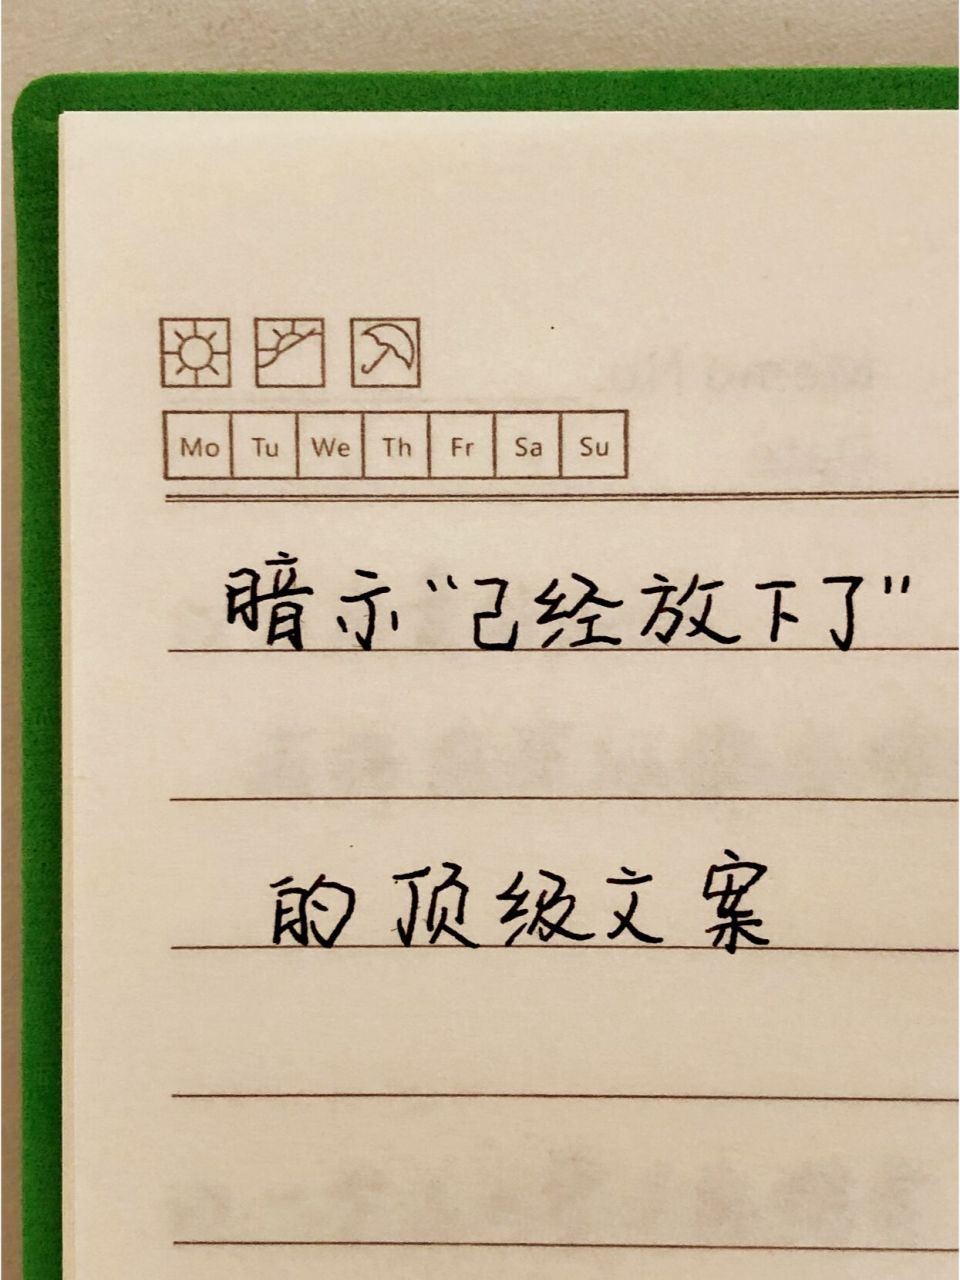 Mo Tu We Th Fr Sa Su
暗示“已经放下了”
的顶级文案